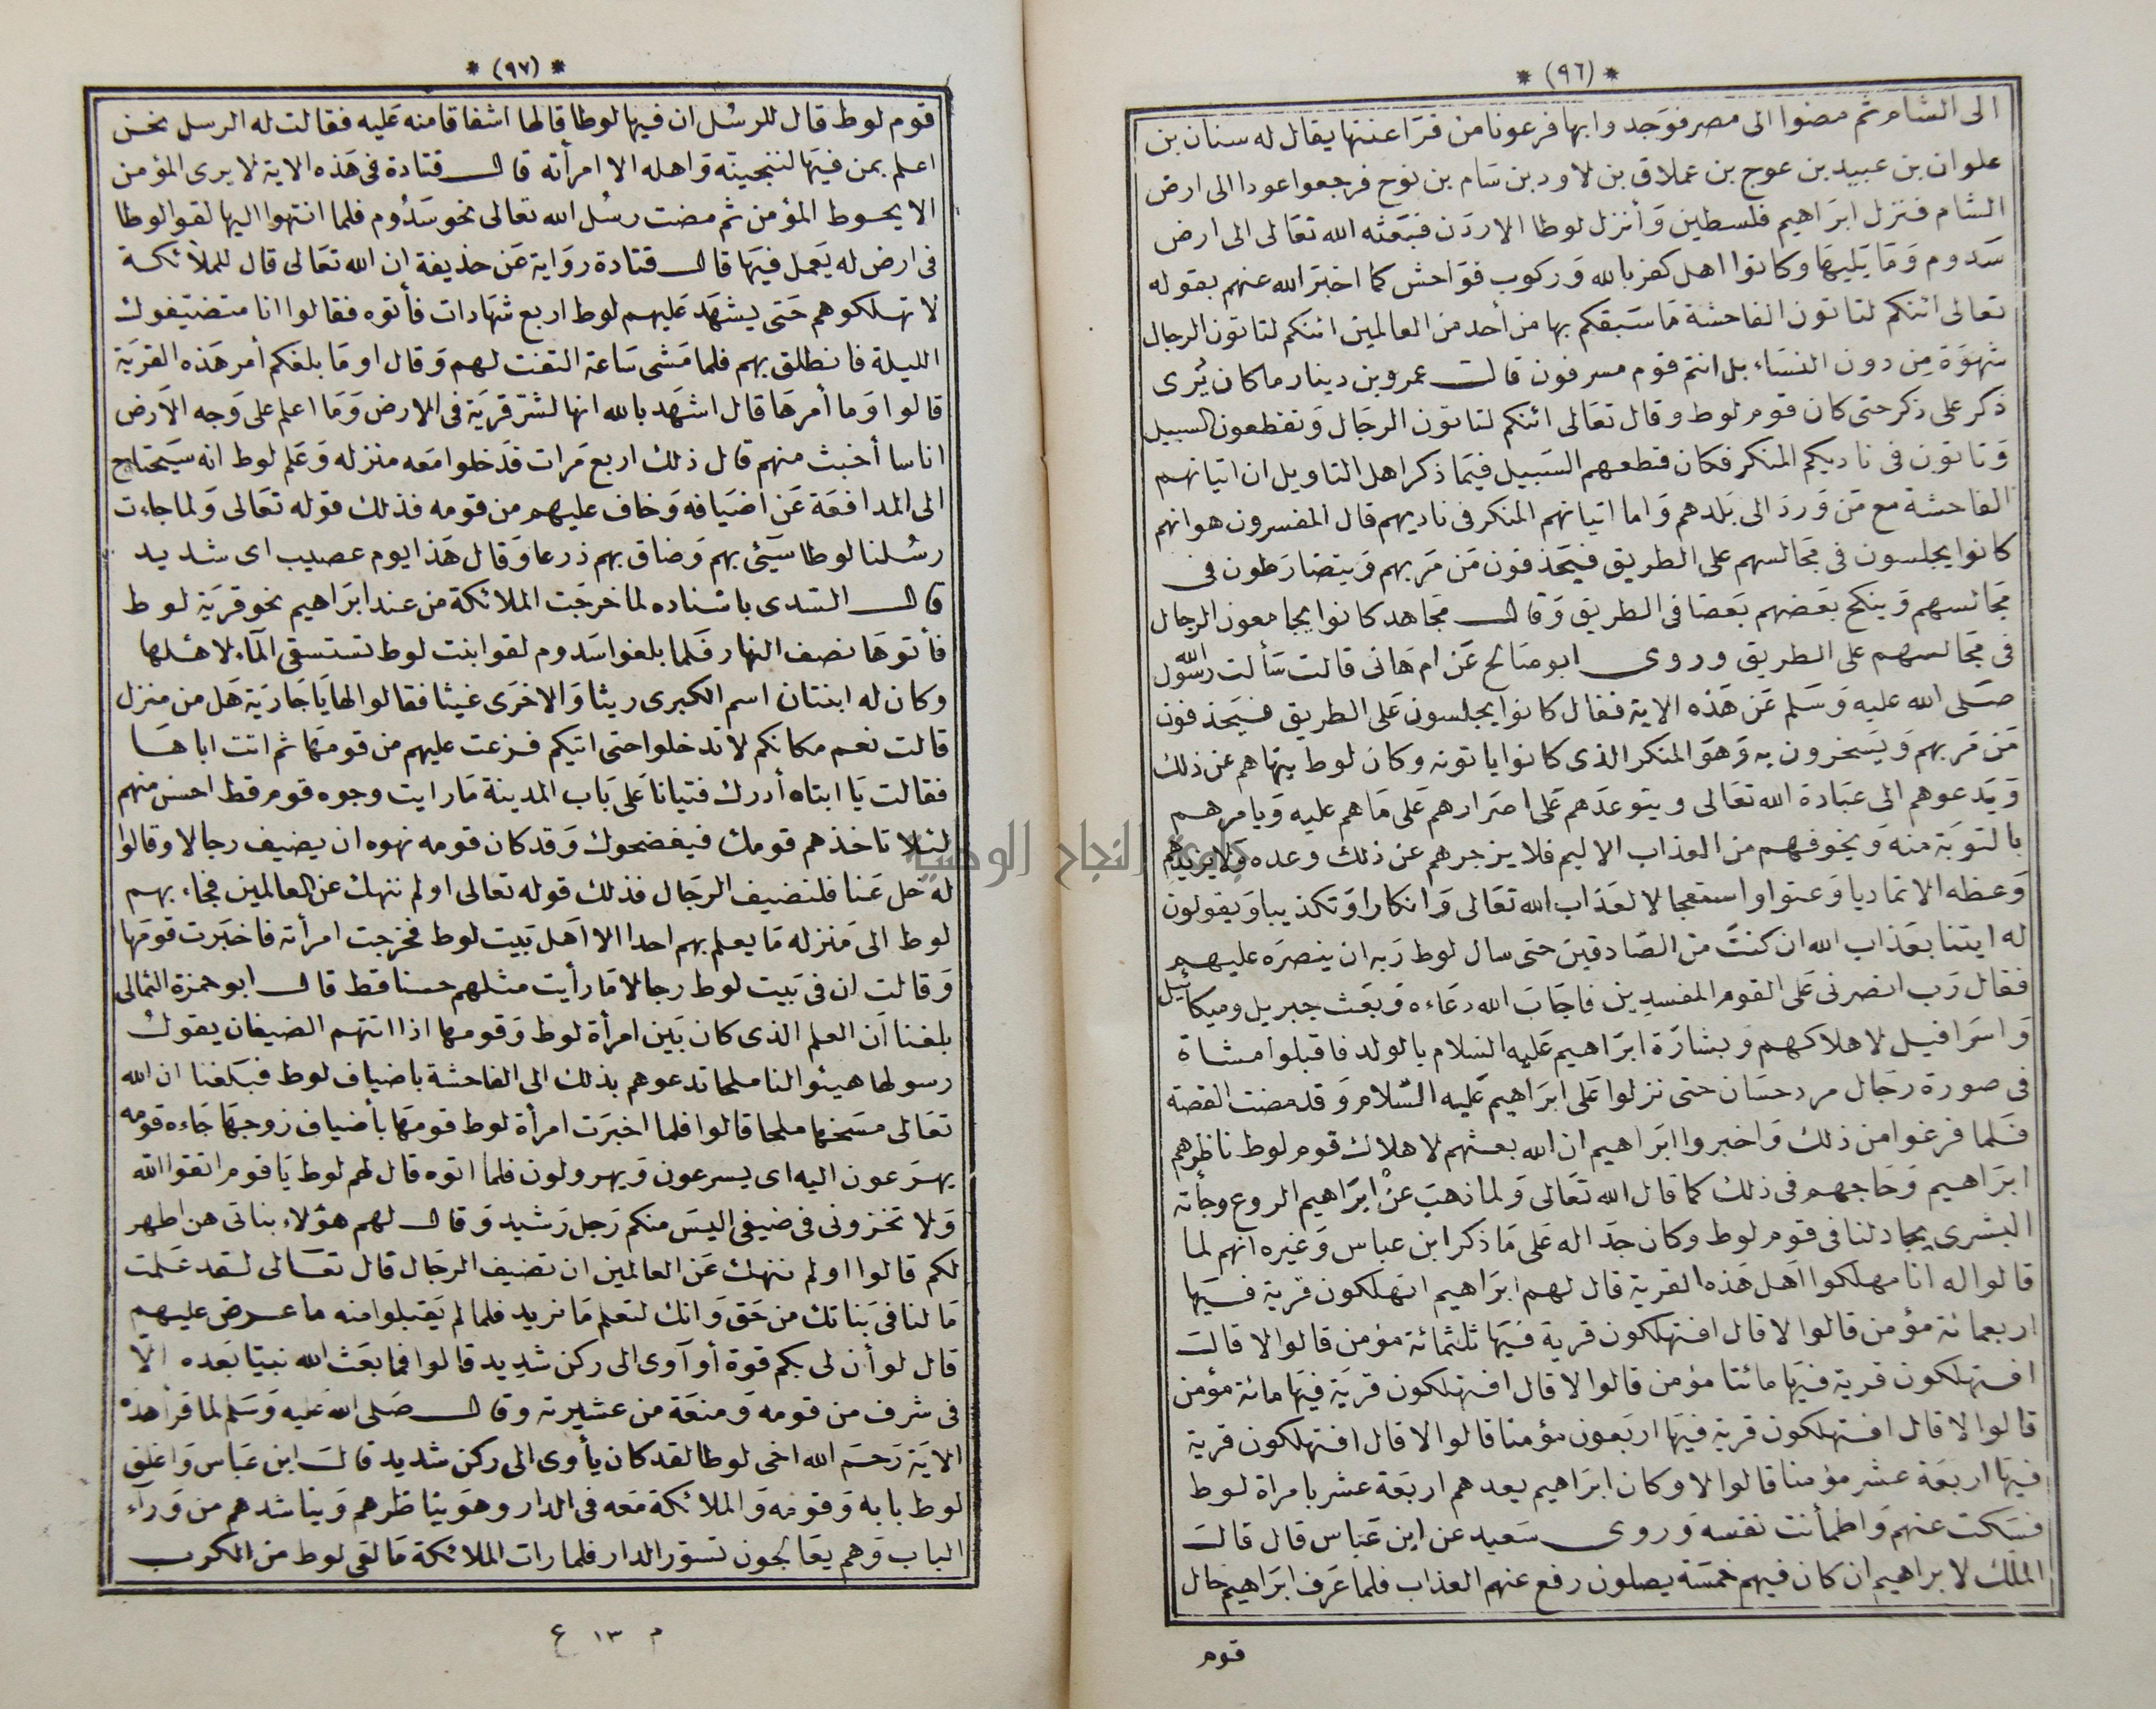 * (٩٦) *
الى الشام ثم مضوا الى مصر فوجدوا بها فرعونا من فراعنتها يقال له سنان بن
علوان بن عبيد بن عوج بن عملاق بن لاود بن سام بن نوح فرجعوا عودا الى ارض
الشام فنزل ابراهيم فلسطين وأنزل لوطا الاردن فبعثه الله تعالى الى ارض
سدوم وما يليها وكانوا اهل كفر بالله وركوب فواحش كما اخبر الله عنهم بقوله
تعالى ائنكم لتاتون الفاحشة ما سبقكم بها من أحد من العالمين ائنكم لتاتون الرجال
شهوة من دون النساء بل انتم قوم مسرفون قالـــ عمرو بن دينار ما كان يُرى
ذكر على ذكر حتى كان قوم لوط وقال تعالى ائنكم لتاتون الرجال وتقطعون السبيل
وتاتون فى ناديكم المنكر فكان قطعهم السبيل فيما ذكر اهل التاويل ان اتيانهم
الفاحشة مع من ورد الى بلدهم واما اتيانهم المنكر فى ناديهم قال المفسرون هو انهم
كانوا يجلسون فى مجالسهم على الطريق فيحذفون من مر بهم ويتضارطون فى
مجالسهم وينكح بعضهم بعضا فى الطريق وقالـــ مجاهد كانوا يجامعون الرجال
فى مجالسهم على الطريق وروى ابو صالح عن ام هانى قالت سألت رسول الله
صلى الله عليه وسلم عن هذه الاية فقال كانوا يجلسون على الطريق فيحذفون
من مر بهم ويسخرون به وهو المنكر الذى كانوا ياتونه وكان لوط ينهاهم عن ذلك
ويدعوهم الى عبادة الله تعالى ويتوعدهم على اصرارهم على ما هم عليه ويامرهم
بالتوبة منه ويخوفهم من العذاب الاليم فلا يزجرهم عن ذلك وعده ولا يزيدهم
وعظه الا تماديا وعتوا واستعجالا لعذاب الله تعالى وانكارا وتكذيبا ويقولون
له ايتنا بعذاب الله ان كنت من الصادقين حتى سال لوط ربه ان ينصره عليهم
فقال رب انصرنى على القوم المفسدين فاجاب الله دعاءه وبعث جبريل وميكائيل
واسرافيل لاهلاكهم وبشارة ابراهيم عليه السلام بالولد فاقبلوا مشاة
فى صورة رجال مرد حسان حتى نزلوا على ابراهيم عليه السلام وقد مضت القصة
فلما فرغوا من ذلك واخبروا ابراهيم ان الله بعثهم لاهلاك قوم لوط ناظرهم
ابراهيم وحاجهم فى ذلك كما قال الله تعالى ولما ذهب عن ابراهيم الروع وجأته
البشرى يجادلنا فى قوم لوط وكان جداله على ما ذكر ابن عباس وغيره انهم لما
قالوا له انا مهلكوا اهل هذه القرية قال لهم ابراهيم اتهلكون قرية فيها
اربعمائة مؤمن قالوا لا قال افتهلكون قرية فيها ثلثمائة مؤمن قالوا لا قالـ
افتهلكون قرية فيها مائتا مؤمن قالوا لا قال افتهلكون قرية فيها مائة مؤمن
قالوا لا قال افتهلكون قرية فيها اربعون مؤمنا قالوا لا قال افتهلكون قرية
فيها اربعة عشر مؤمنا قالوا لا وكان ابراهيم يعدهم اربعة عشر بامراة لوط
فسكت عنهم واطمأنت نفسه وروى سعيد عن ابن عباس قال قالـ
الملك لابراهيم ان كان فيهم خمسة يصلون رفع عنهم العذاب فلما عرف ابراهيم حال
قوم
* (٩٧) *
قوم لوط قال للرسُل ان فيها لوطا قالها اشفاقا منه عليه فقالت له الرسل نحن
اعلم بمن فيها لننجينه واهله الا امرأته قالـــ قتادة فى هذه الاية لا يرى المؤمن
الا يحوط المؤمن ثم مضت رسُل الله تعالى نحو سدُوم فلما انتهوا اليها لقوا لوطا
فى ارض له يعمل فيها قالـــ قتادة رواية عن حذيفة ان الله تعالى قال للملائكة
لا تهلكوهم حتى يشهد عليهم لوط اربع شهادات فأتوه فقالوا انا متضيفوك
الليلة فانطلق بهم فلما مشى ساعة التفت لهم وقال او ما بلغكم أمر هذه القرية
قالوا وما أمرها قال اشهد بالله انها لشر قرية فى الارض وما اعلم على وجه الارض
اناسا أخبث منهم قال ذلك اربع مرات فدخلوا معه منزله وعلم لوط انه سيحتاج
الى المدافعة عن اضيافه وخاف عليهم من قومه فذلك قوله تعالى ولما جاءت
رسُلنا لوطا سيئ بهم وضاق بهم ذرعا وقال هذا يوم عصيب اى شديد
قالـــ السدى باسناده لما خرجت الملائكة من عند ابراهيم نحو قرية لوط
فأتوها نصف النهار فلما بلغوا سدوم لقوا بنت لوط تستسقى الماء لاهلها
وكان له ابنتان اسم الكبرى ريثا والاخرى غيثا فقالوا لها يا جارية هل من منزل
قالت نعم مكانكم لا تدخلوا حتى اتيكم فزعت عليهم من قومها ثم اتت اباها
فقالت يا ابتاه أدرك فتيانا على باب المدينة ما رايت وجوه قوم قط احسن منهم
لئلا تاخذهم قومك فيفضحوك وقد كان قومه نهوه ان يضيف رجالا وقالوا
له خل عنا فلنضيف الرجال فذلك قوله تعالى اولم ننهك عن العالمين فجاء بهم
لوط الى منزله ما يعلم بهم احدا الا اهل بيت لوط فخرجت امرأته فاخبرت قومها
وقالت ان فى بيت لوط رجالا ما رأيت مثلهم حسنا قط قالـــ ابو حمزة الثمالى
بلغنا ان العلم الذى كان بين امرأة لوط وقومها اذا اتتهم الضيفان يقول
رسولها هيئوا لنا ملحا تدعوهم بذلك الى الفاحشة باضياف لوط فبلغنا ان الله
تعالى مسخها ملحا قالوا فلما اخبرت امرأة لوط قومها بأضياف زوجها جاءه قومه
يهرعون اليه اى يسرعون ويهرولون فلما اتوه قال لهم لوط يا قوم اتقوا الله
ولا تخزونى فى ضيفى اليس منكم رجل رشيد وقالـــ لهم هؤلاء بناتى هن اطهر
لكم قالوا اولم ننهك عن العالمين ان تضيف الرجال قال تعالى لقد علمت
ما لنا فى بناتك من حق وانك لتعلم ما نريد فلما لم يقبلوا منه ما عرض عليهم
قال لو أن لى بكم قوة أو آوى الى ركن شديد قالوا فما بعث الله نبيا بعده الا
فى شرف من قومه ومنعة من عشيرته وقالـــ صلى الله عليه وسلم لما قرأ هذه
الاية رحم الله اخى لوطا لقد كان يأوى الى ركن شديد قالـ ابن عباس واغلق
لوط بابه وقومه والملائكة معه فى الدار وهو يناظرهم ويناشدهم من وراء
الباب وهم يعالجون تسور الدار فلما رات الملائكة ما لقى لوط من الكرب
م ١٣ ع